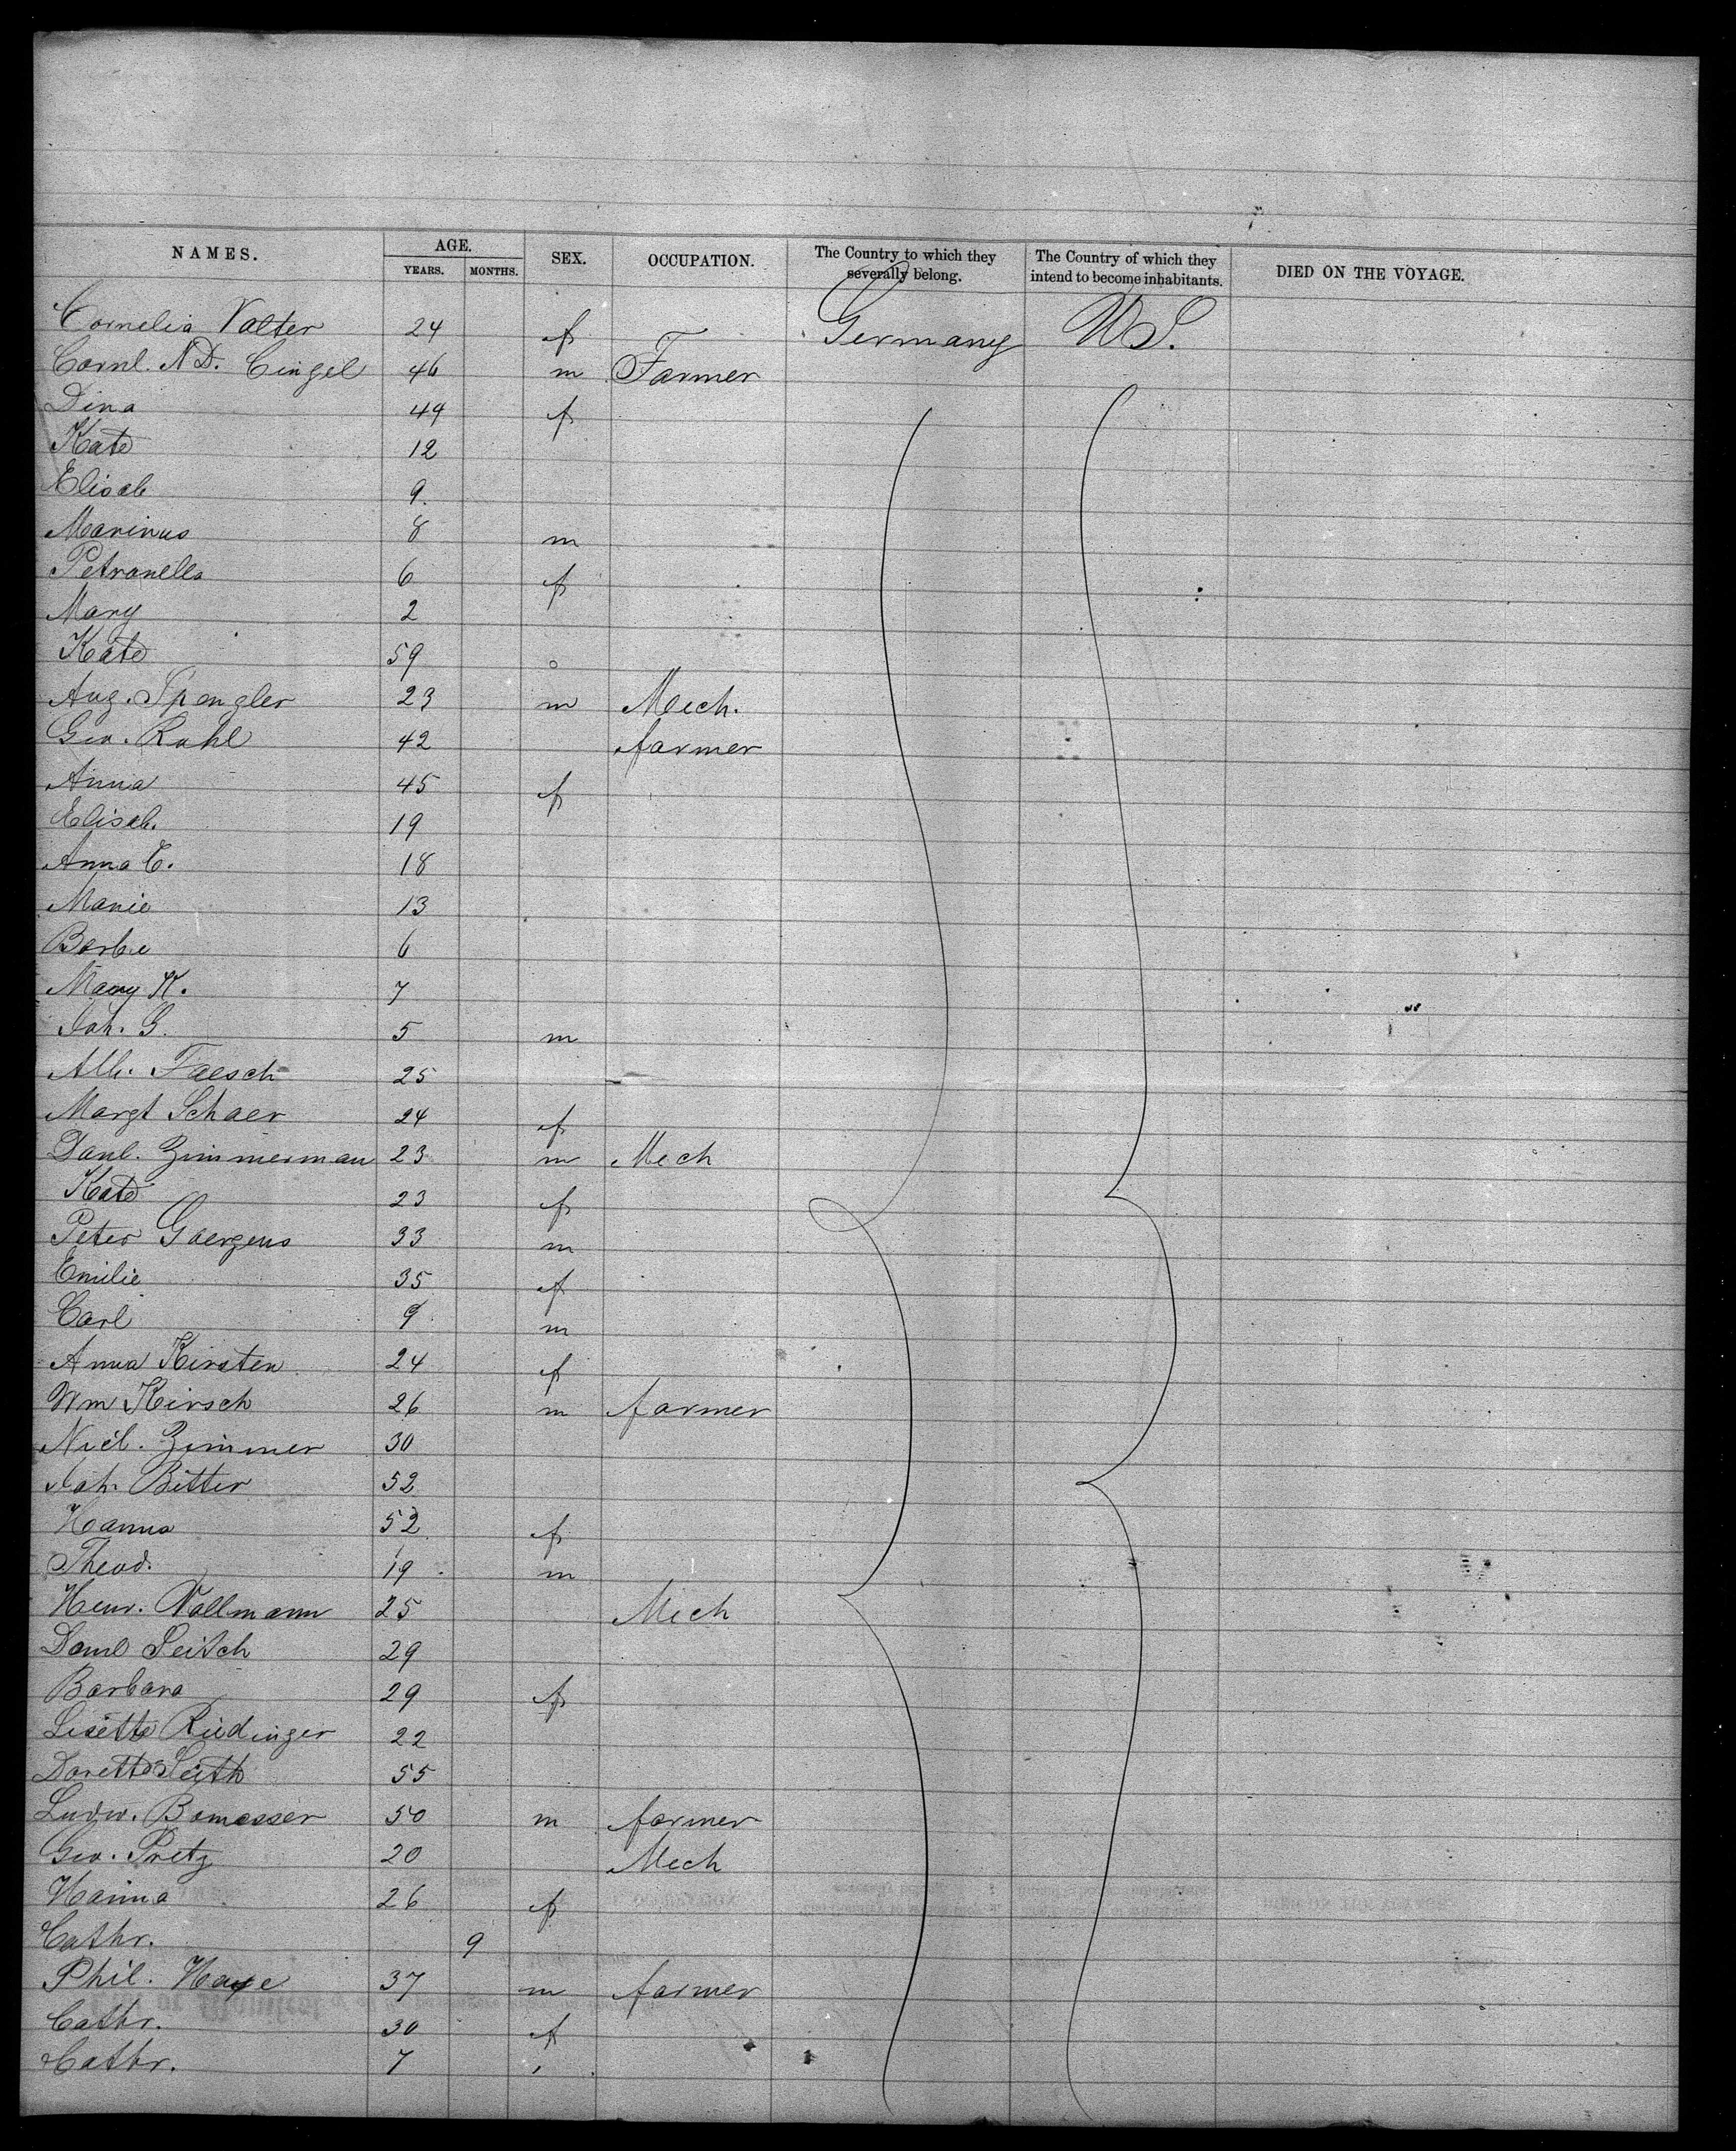 NAMES. AGE. SEX. OCCUPATION. The Country to which they severally belong. The Country of which they intend to become inhabitants. DIED ON THE VOYAGE.
YEARS. MONTHS.
Cornelia Valter 24 f Germany U S.
Cornl. N D. Cingel 46 m Farmer
Dina 49 f
Kate 12
Elisab 9.
Marinus 8 m
Petronella 6 f
Mary 2
Kate 59
Aug. Spengler 23 m Mech.
Geo. Rahl 42 farmer
Anna 45 f
Elisab. 19
Anna C. 18
Marie 13
Barbe 6
Mary K. 7
Joh. G. 5 m
Alb. Faesch 25
Margt Schaer 24 f
Danl. Zimmerman 23 m Mech
Kate 23 f
Peter Goergens 33 m
Emilie 35 f
Carl 9 m
Anna Kirsten 24 f
Wm Kirsch 26 m farmer
Nicl. Zimmer 30
Joh. Bitter 52
Hanna 52 f
Theod. 19 m
Henr. Vollmann 25 Mech
Daml Seitch 29
Barbara 29 f
Lisette Riedinger 22
Dorette Seith 55
Ludw. Bomasser 50 m farmer
Geo. Pretz 20 Mech
Hanna 26 f
Cathr. 9
Phil. Haye 37 m farmer
Cathr. 30 f
Cathr. 7